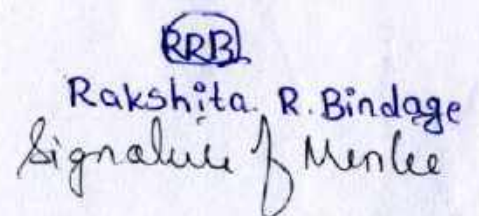 RRB
Rakshita. R. Bindage
Signature of Mentee